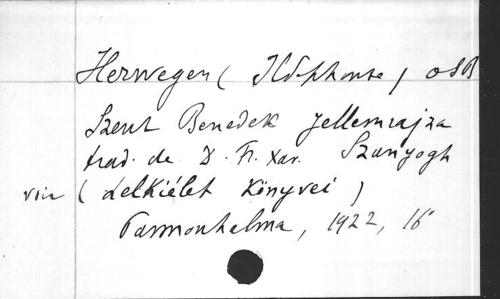 Herwegen (Ildephonse) OSB
Szent Benedek jellemrajza
trad. de D. Fr. Xav. Szunyogh
voir (Lelkiélet Könyvei)
Pannonhalma, 1922, 16°